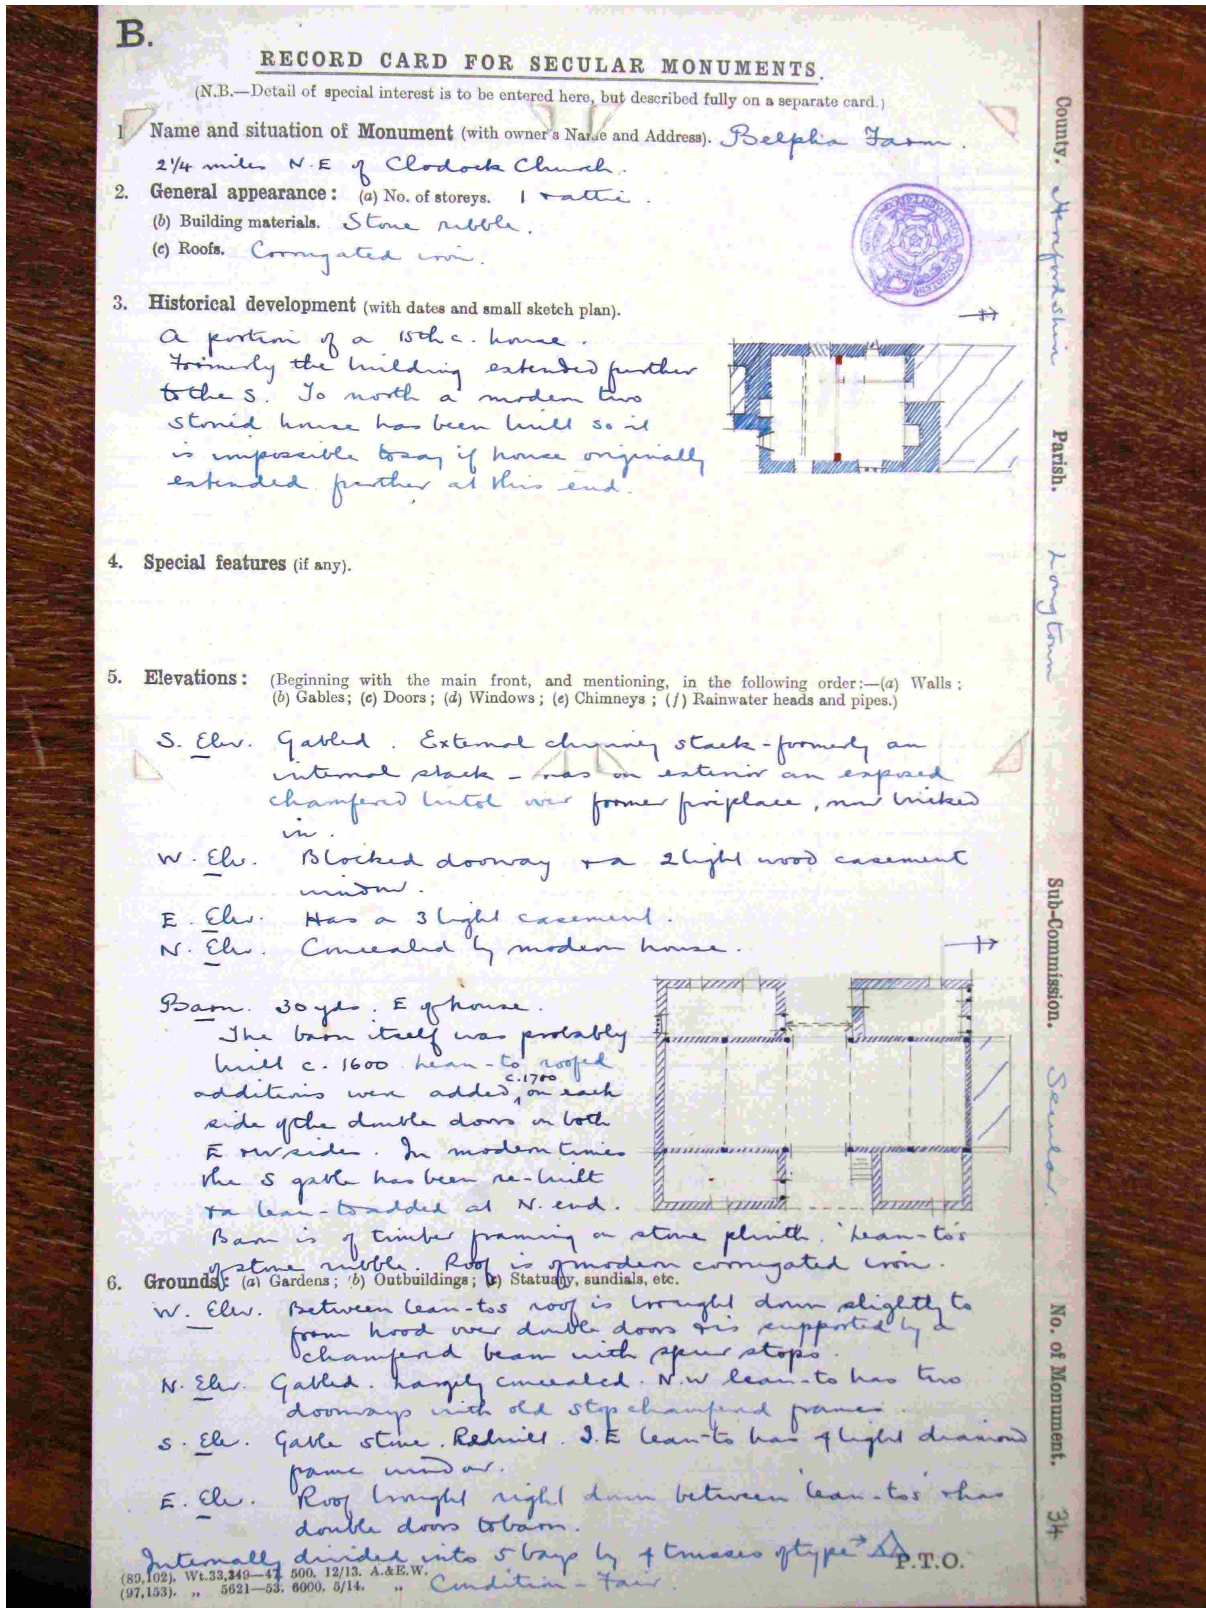 B.
RECORD CARD FOR SECULAR MONUMENTS.
(N.B.—Detail of special interest is to be entered here, but described fully on a separate card.)
1 Name and situation of Monument (with owner's Name and Address). Belpha Farm.
2¼ miles N.E of Clodock Church.
2. General appearance: (a) No. of storeys. 1 + attic.
(b) Building materials. Stone rubble.
(c) Roofs. Corrugated iron.
3. Historical development (with dates and small sketch plan).
A portion of a 15th c. house.
Formerly the building extended further
to the S. To north a modern two
storied house has been built so it
is impossible to say if house originally
extended further at this end.
4. Special features (if any).
5. Elevations: (Beginning with the main front, and mentioning, in the following order:—(a) Walls:
(b) Gables; (c) Doors; (d) Windows; (e) Chimneys; (f) Rainwater heads and pipes.)
S. Elev. Gabled. External chimney stack - formerly an
internal stack - has on exterior an exposed
chamfered lintol over former fireplace, now bricked
in.
W. Elev. Blocked doorway + a 2 light wood casement
window.
E. Elev. Has a 3 light casement.
N. Elev. Concealed by modern house.
Barn. 30 yds. E of house.
The barn itself was probably
built c. 1600 lean-to roofed
additions were added c. 1700 on each
side of the double doors on both
E + W sides. In modern times
the S gable has been re-built
+ a lean-to added at N. end.
Barn is of timber framing on stone plinth. 'Lean-to's
of stone rubble. Roof is of modern corrugated iron.
6. Grounds: (a) Gardens; (b) Outbuildings; (c) Statuary, sundials, etc.
W. Elev. Between lean-tos roof is brought down slightly to
form hood over double doors + is supported by a
chamfered beam with spur stops.
N. Elev. Gabled. Largely concealed. N.W lean-to has two
doorways with old stop chamfered frames.
S. Elev. Gable stone. Rebuilt. S.E lean-to has 4 light diamond
pane window.
E. Elev. Roof brought right down between 'lean-tos' + has
double doors to barn.
Internally divided into 5 bays by 4 trusses of type
P.T.O.
(89,102). Wt.33,349—47. 500. 12/13. A.&E.W.
(97,153). „ 5621—53. 6000. 5/14. „ Condition - Fair.
County. Herefordshire
Parish. Longtown
Sub-Commission. Secular.
No. of Monument. 34